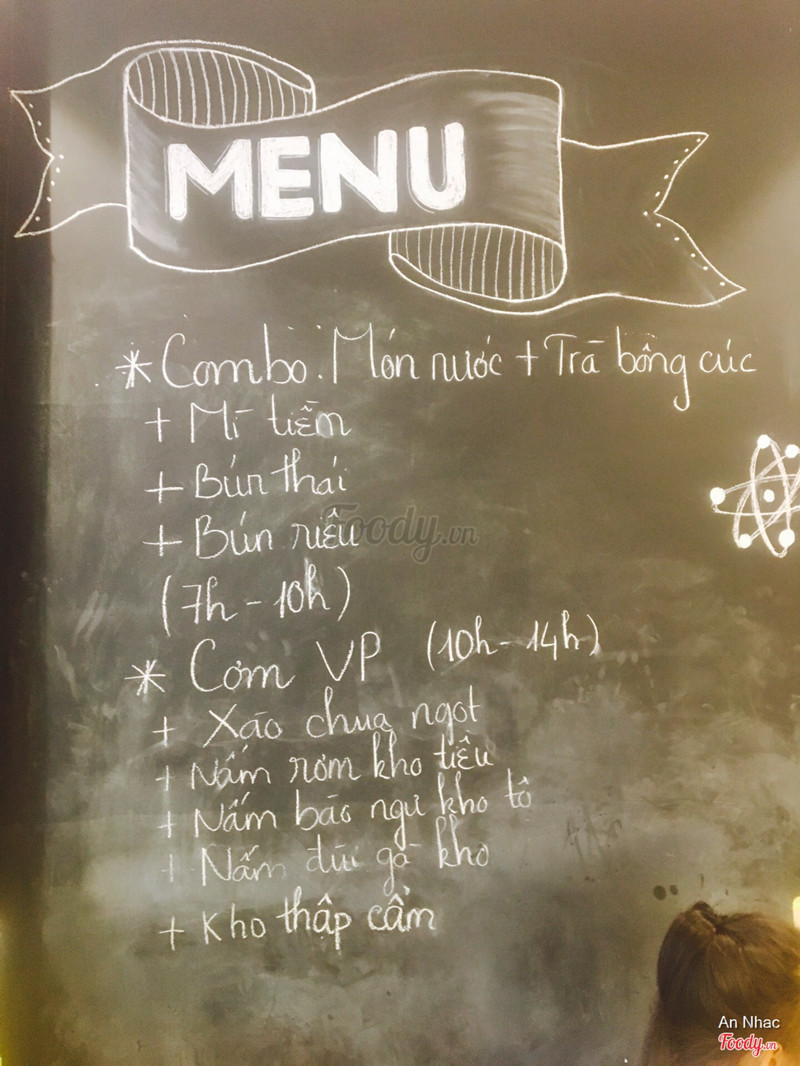 MENU
* Combo: Món nước + Trà bông cúc
+ Mì tiềm
+ Bún thái
+ Bún riêu
(7h - 10h)
* Cơm VP (10h - 14h)
+ Xào chua ngọt
+ Nấm rơm kho tiêu
+ Nấm bào ngư kho tô
+ Nấm đùi gà kho
+ Kho thập cẩm
Foody.vn
An Nhac
Foody.vn